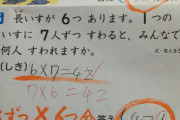 長いすが 6つ あります。1つの
いすに 7人ずつ すわると、みんなで
何人 すわれますか。
(しき) 6×7=42
7×6=42
ずつ×6つ分
答え